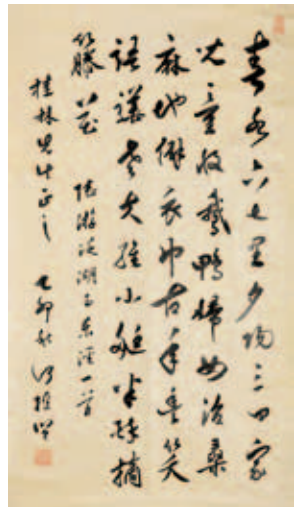 春水六七里夕陽三四家
兒童收鵝鴨婦女治桑
麻地僻衣巾古年豐笑
語譁老夫維小艇半醉摘
籐花 陸游泛湖至東涇一首
桂林先生正之 乙卯秋 何維樸